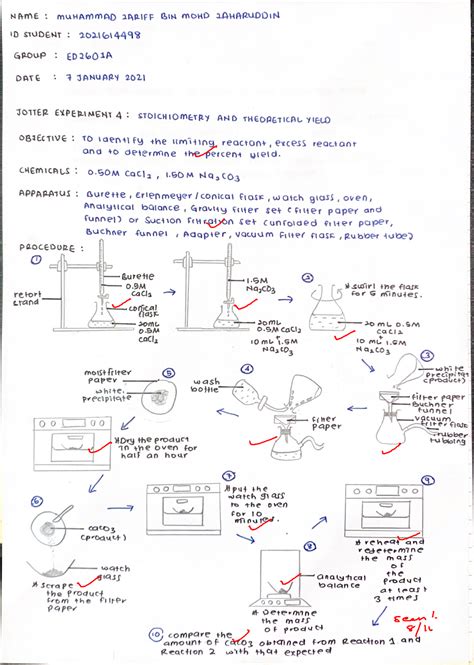 NAME : MUHAMMAD ZARIFF BIN MOHD ZAHARUDDIN
ID STUDENT : 2021614498
GROUP : ED2601A
DATE : 7 JANUARY 2021
JOTTER EXPERIMENT 4 : STOICHIOMETRY AND THEORETICAL YIELD
OBJECTIVE : To identify the limiting reactant, excess reactant
and to determine the percent yield.
CHEMICALS : 0.50M CaCl2, 1.50M Na2CO3
APPARATUS : Burette, Erlenmeyer/conical flask, watch glass, oven,
Analytical balance, Gravity filter set (filter paper and
funnel) or Suction filtration set (unfolded filter paper,
Buchner funnel, Adapter, vacuum filter flask, Rubber tube)
PROCEDURE :
1
retort
stand
Burette
0.5M
CaCl2
conical
flask
20mL
0.5M
CaCl2
1.5M
Na2CO3
20mL
0.5M CaCl2
+
10 mL 1.5M
Na2CO3
2
*swirl the flask
for 5 minutes.
20 mL 0.5M
CaCl2
+
10 mL 1.5M
Na2CO3
3
white
precipitate
(product)
filter paper
Buchner
funnel
vacuum
filter flask
rubber
tubbing
4
wash
bottle
filter
paper
5
moist filter
paper
white
precipitate
*Dry the product
in the oven for
half an hour
6
CaCO3
(product)
watch
glass
*scrape
the product
from the filter
paper
7
*put the
watch glass
to the oven
for 10
minutes.
8
analytical
balance
*Determine
the mass
of product
9
*reheat and
redetermine
the mass
of the
product
at least
3 times
Seen!
8/11
10 compare the
amount of CaCO3 obtained from Reaction 1 and
Reaction 2 with that expected